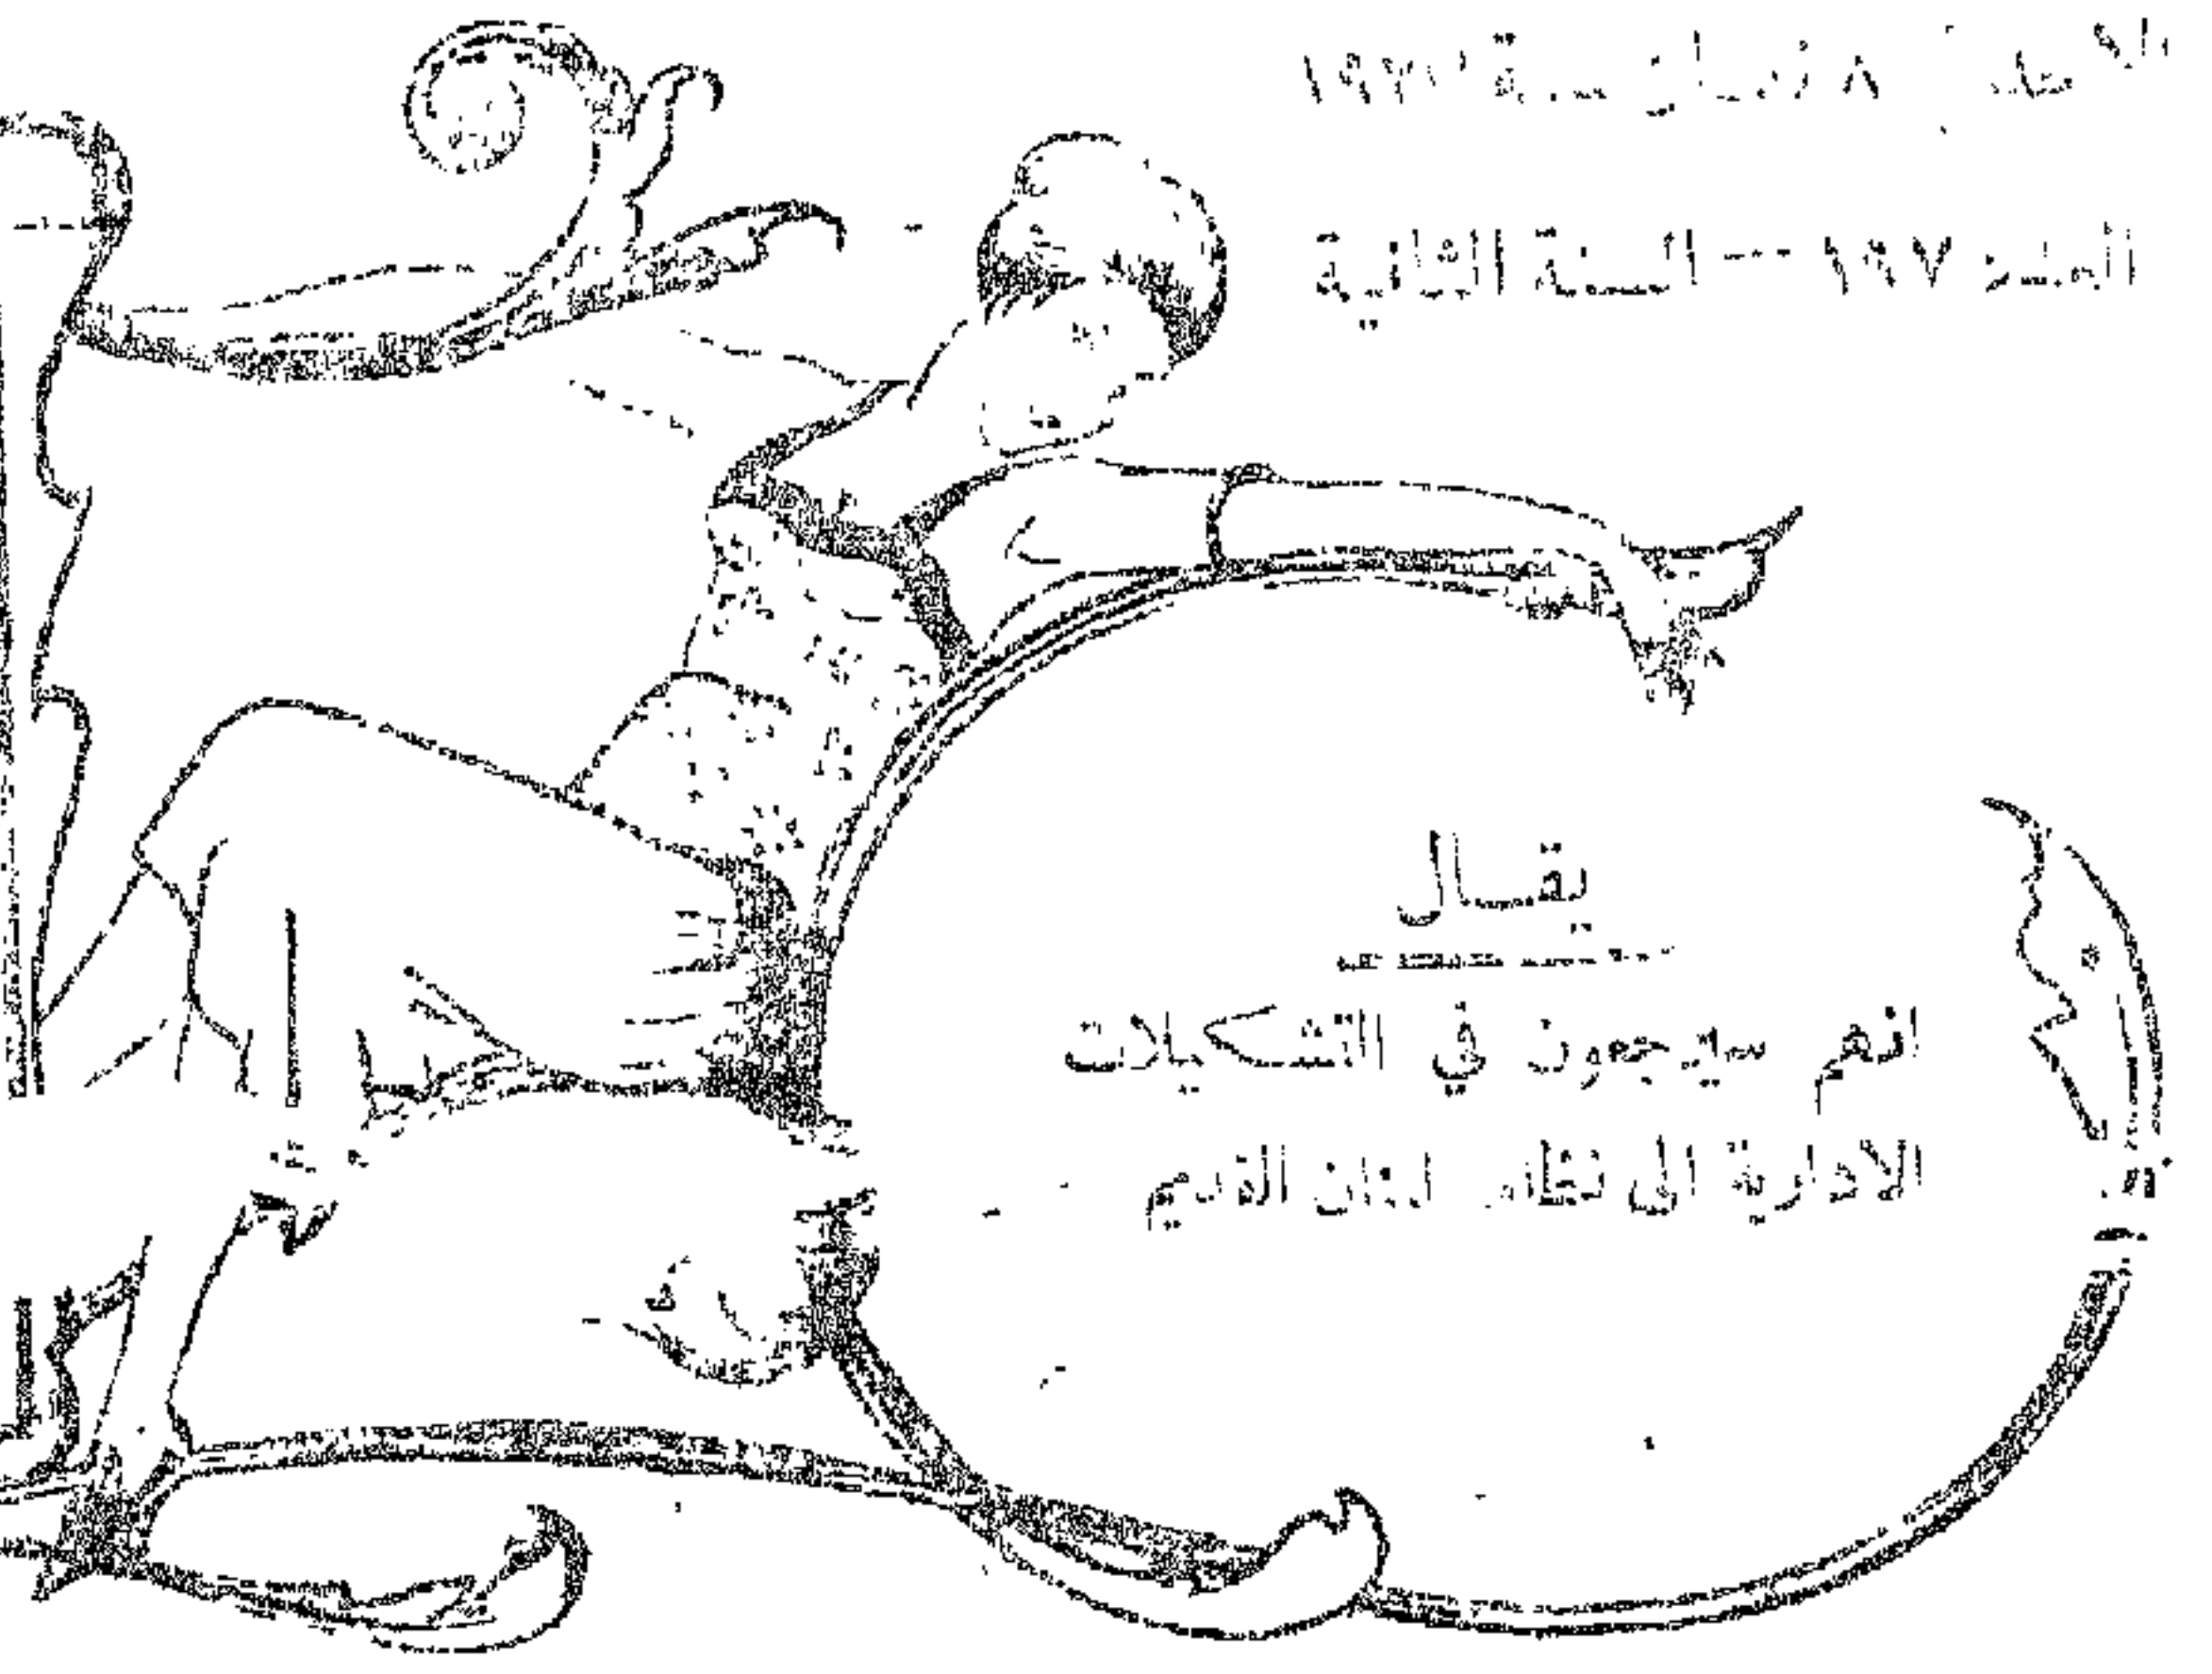 الاحد ٨ نيسان سنة
العدد ١٩٧ — السنة الثانية
يقال
انهم سيرجعون في التشكيلات
الادارية الى نظام لبنان القديم